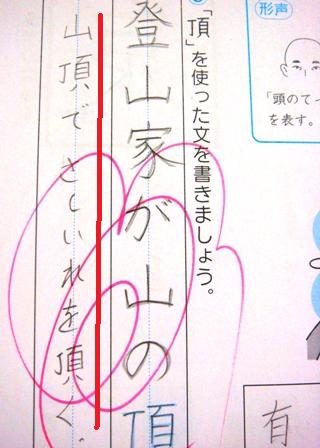 形声
「頭のてっ
を表す。
「頂」を使った文を書きましょう。
登山家が山の頂
山頂でさしいれを頂く。
有